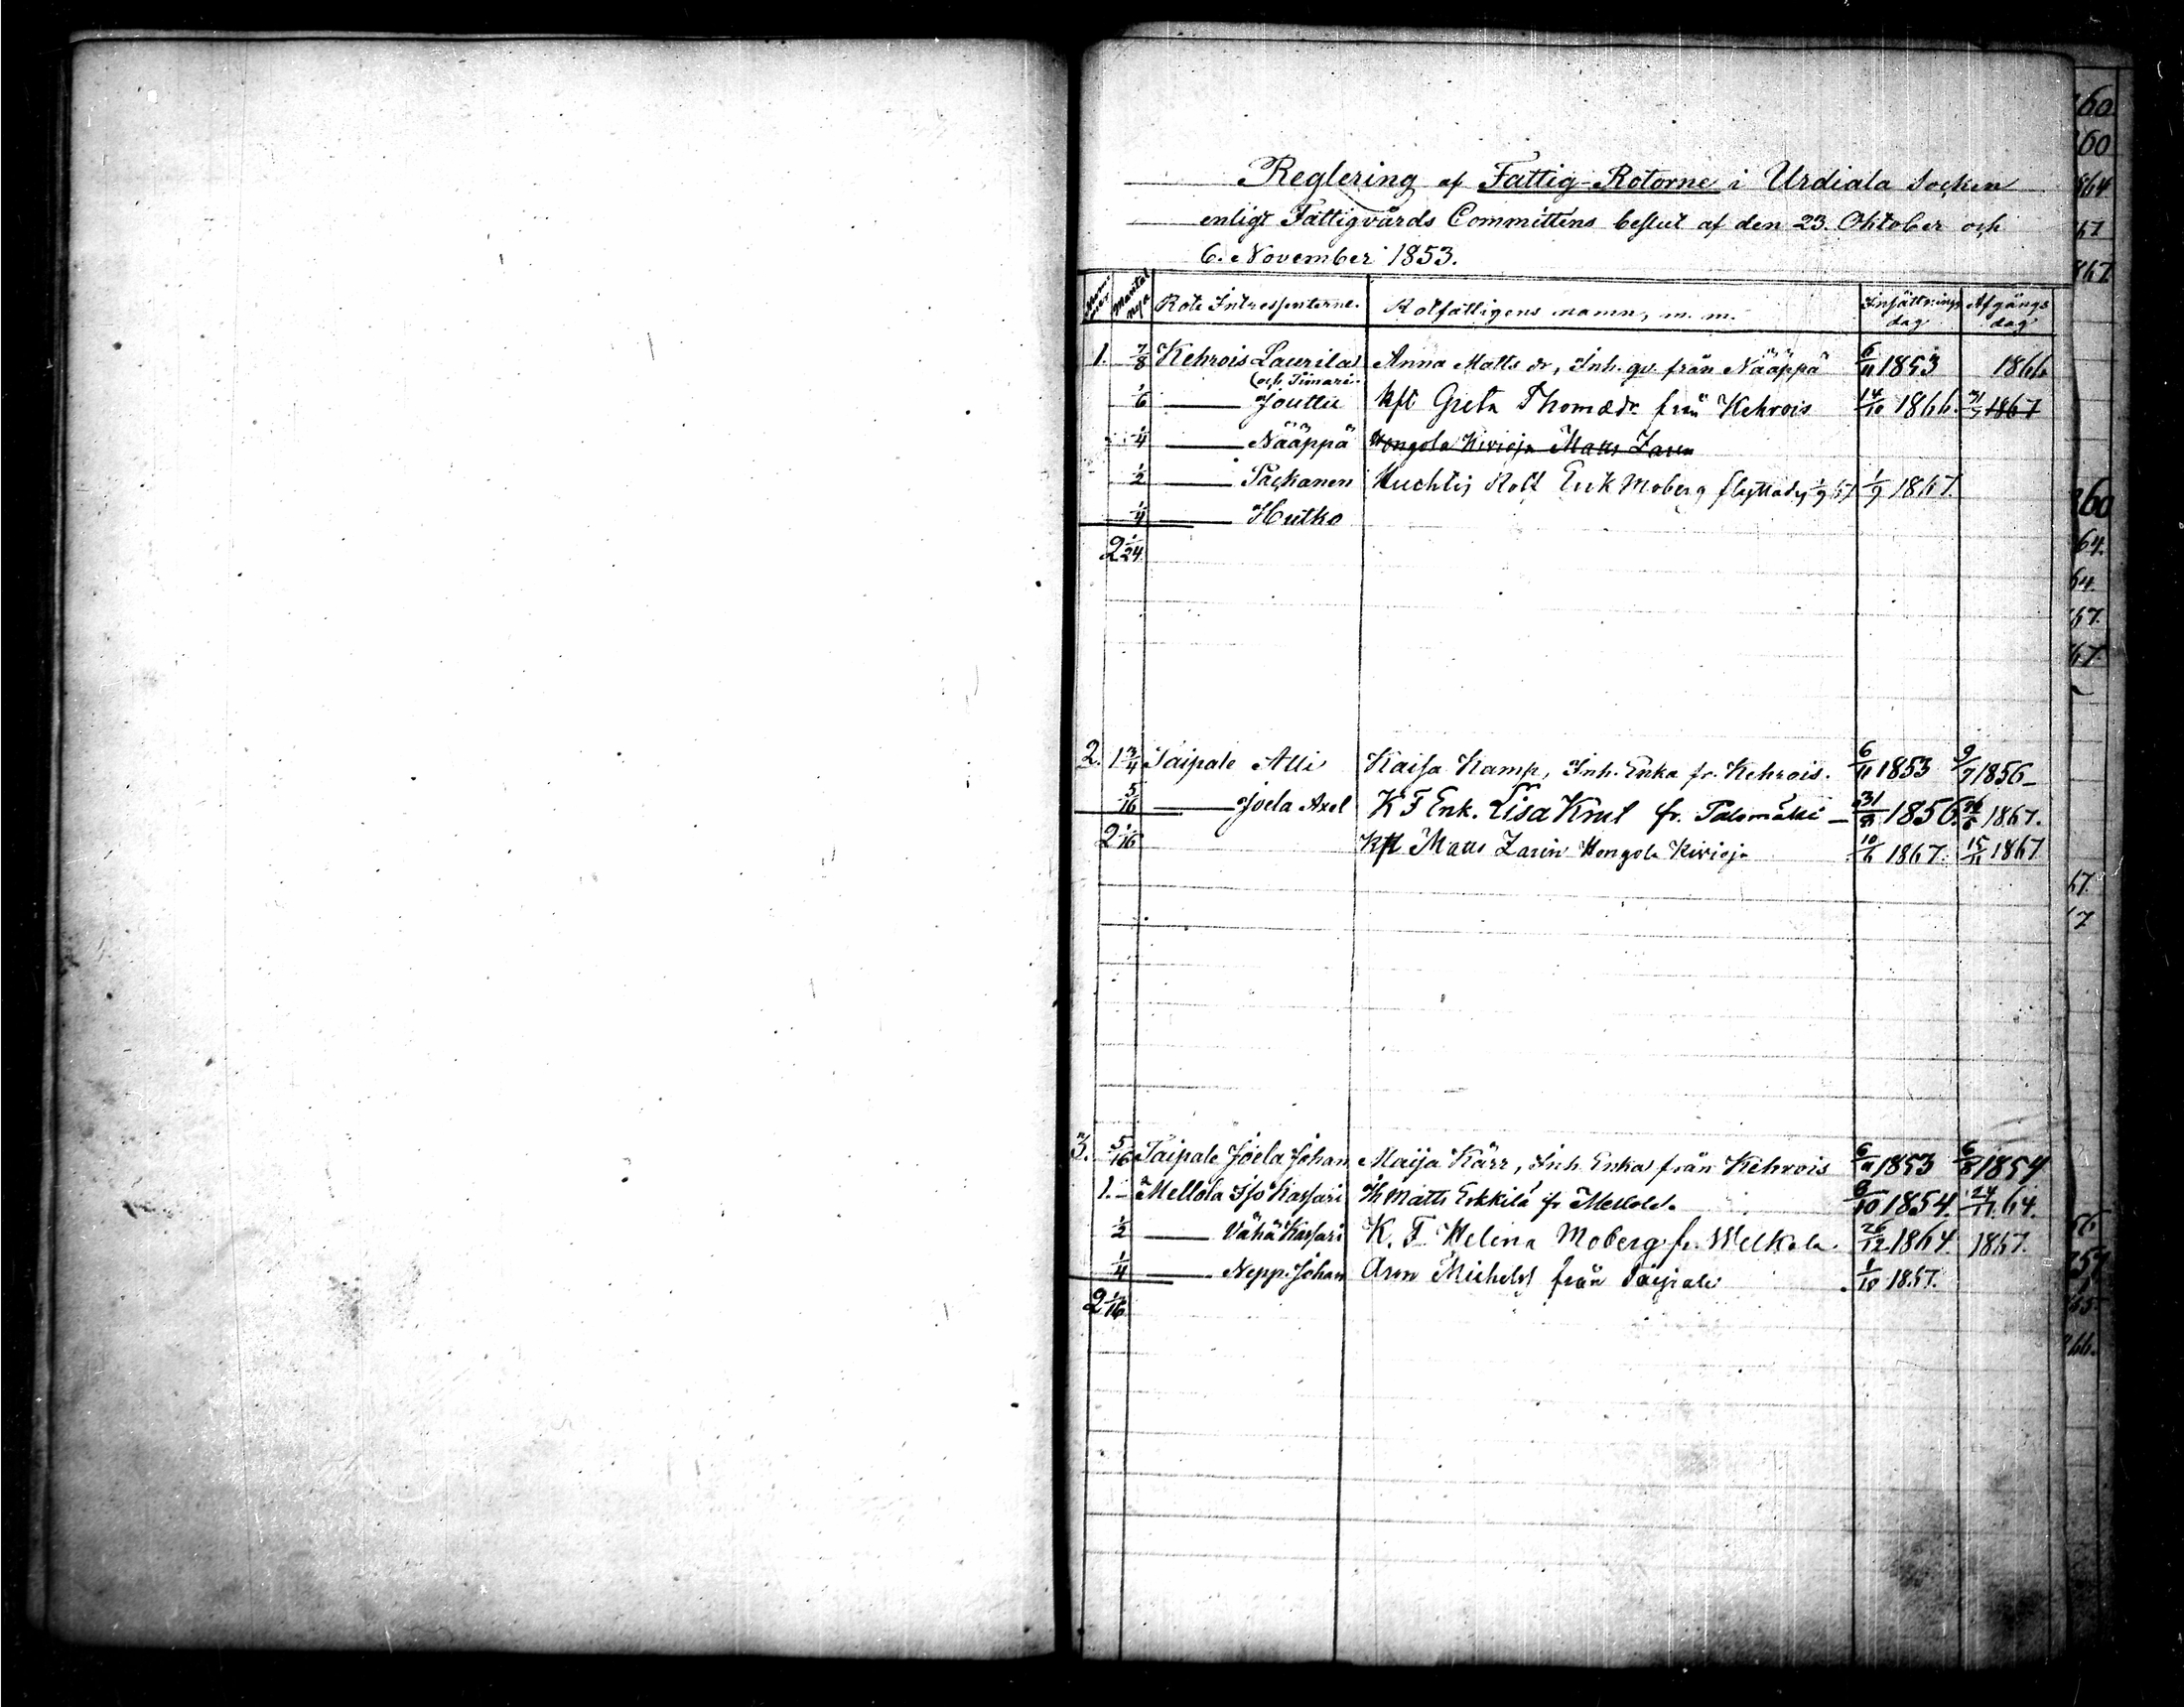 Reglering af Fattig-Rotorne i Urdiala Socken
enligt Fattigvårds Committéns beslut af den 23. Oktober och
6. November 1853.
Nummer Mantal Nya Rote Intressenterne. Rotfattigens namn, m. m. Insättnings dag Afgångs dag
1. 7/8 Kehrois Laurila Anna Matts dr, Inh. qv. från Nääppä 6/11 1853 1866
(och Simari
1/6 — Jouttu Kft Greta Thomædr från Kehrois 14/10 1866. 31/7 1867
1/4 — Nääppä Hongola Kivioja Matts Zarin
1/2 — Packanen Huchtis Rote Erik Moberg flyttad 1/9 67 1/9 1867.
1/4 — Hutko
2 1/24
2. 1 3/4 Taipale Alli Kaisa Kamp, Inh. Enka fr. Kehrois. 6/11 1853 9/7 1856
5/16 — Joela Axel K F Enk. Lisa Krul fr. Palomäki 31/8 1856. 1867.
2 1/16 Kft Matts Zarin Hongola Kivioja 10/6 1867. 15/11 1867
3. 5/16 Taipale Joela Johan Maija Kärr, Inh. Enka från Kehrois 6/11 1853 6/8 1854
1. – Mellola Iso Kassari Ih Matts Erkkilä fr Mellola. 8/10 1854. 24/11 64.
1/2 — Vähä Kassari K. F. Helena Moberg fr. Welkala. 26/12 1864. 1867.
1/4 — Nepp. Johan Michelsd från Taipale 1/10 1867.
2 1/16